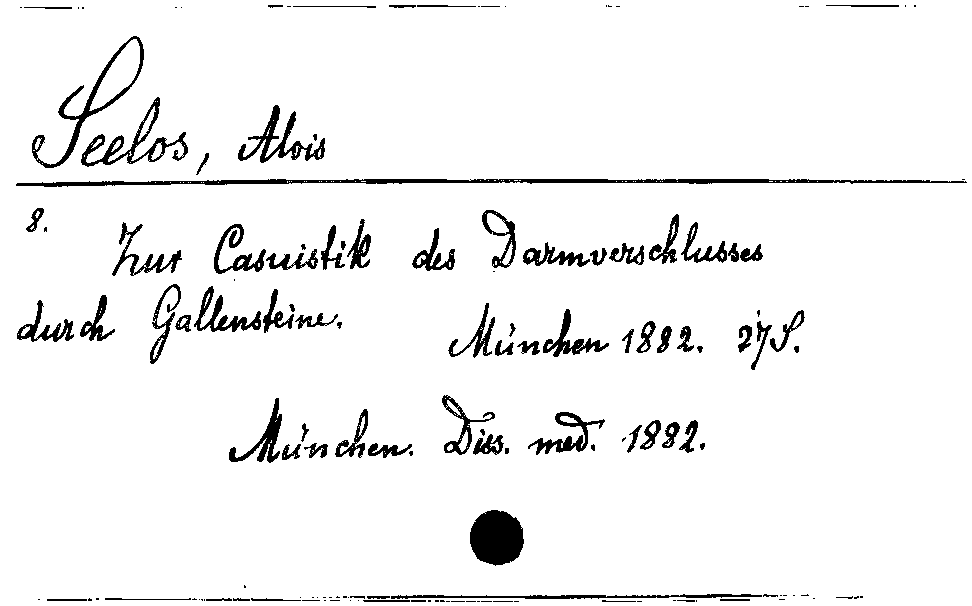 Seelos, Alois
8.
Zur Casuistik des Darmverschlusses
durch Gallensteine.
München 1882. 27 S.
München. Diss. med. 1882.